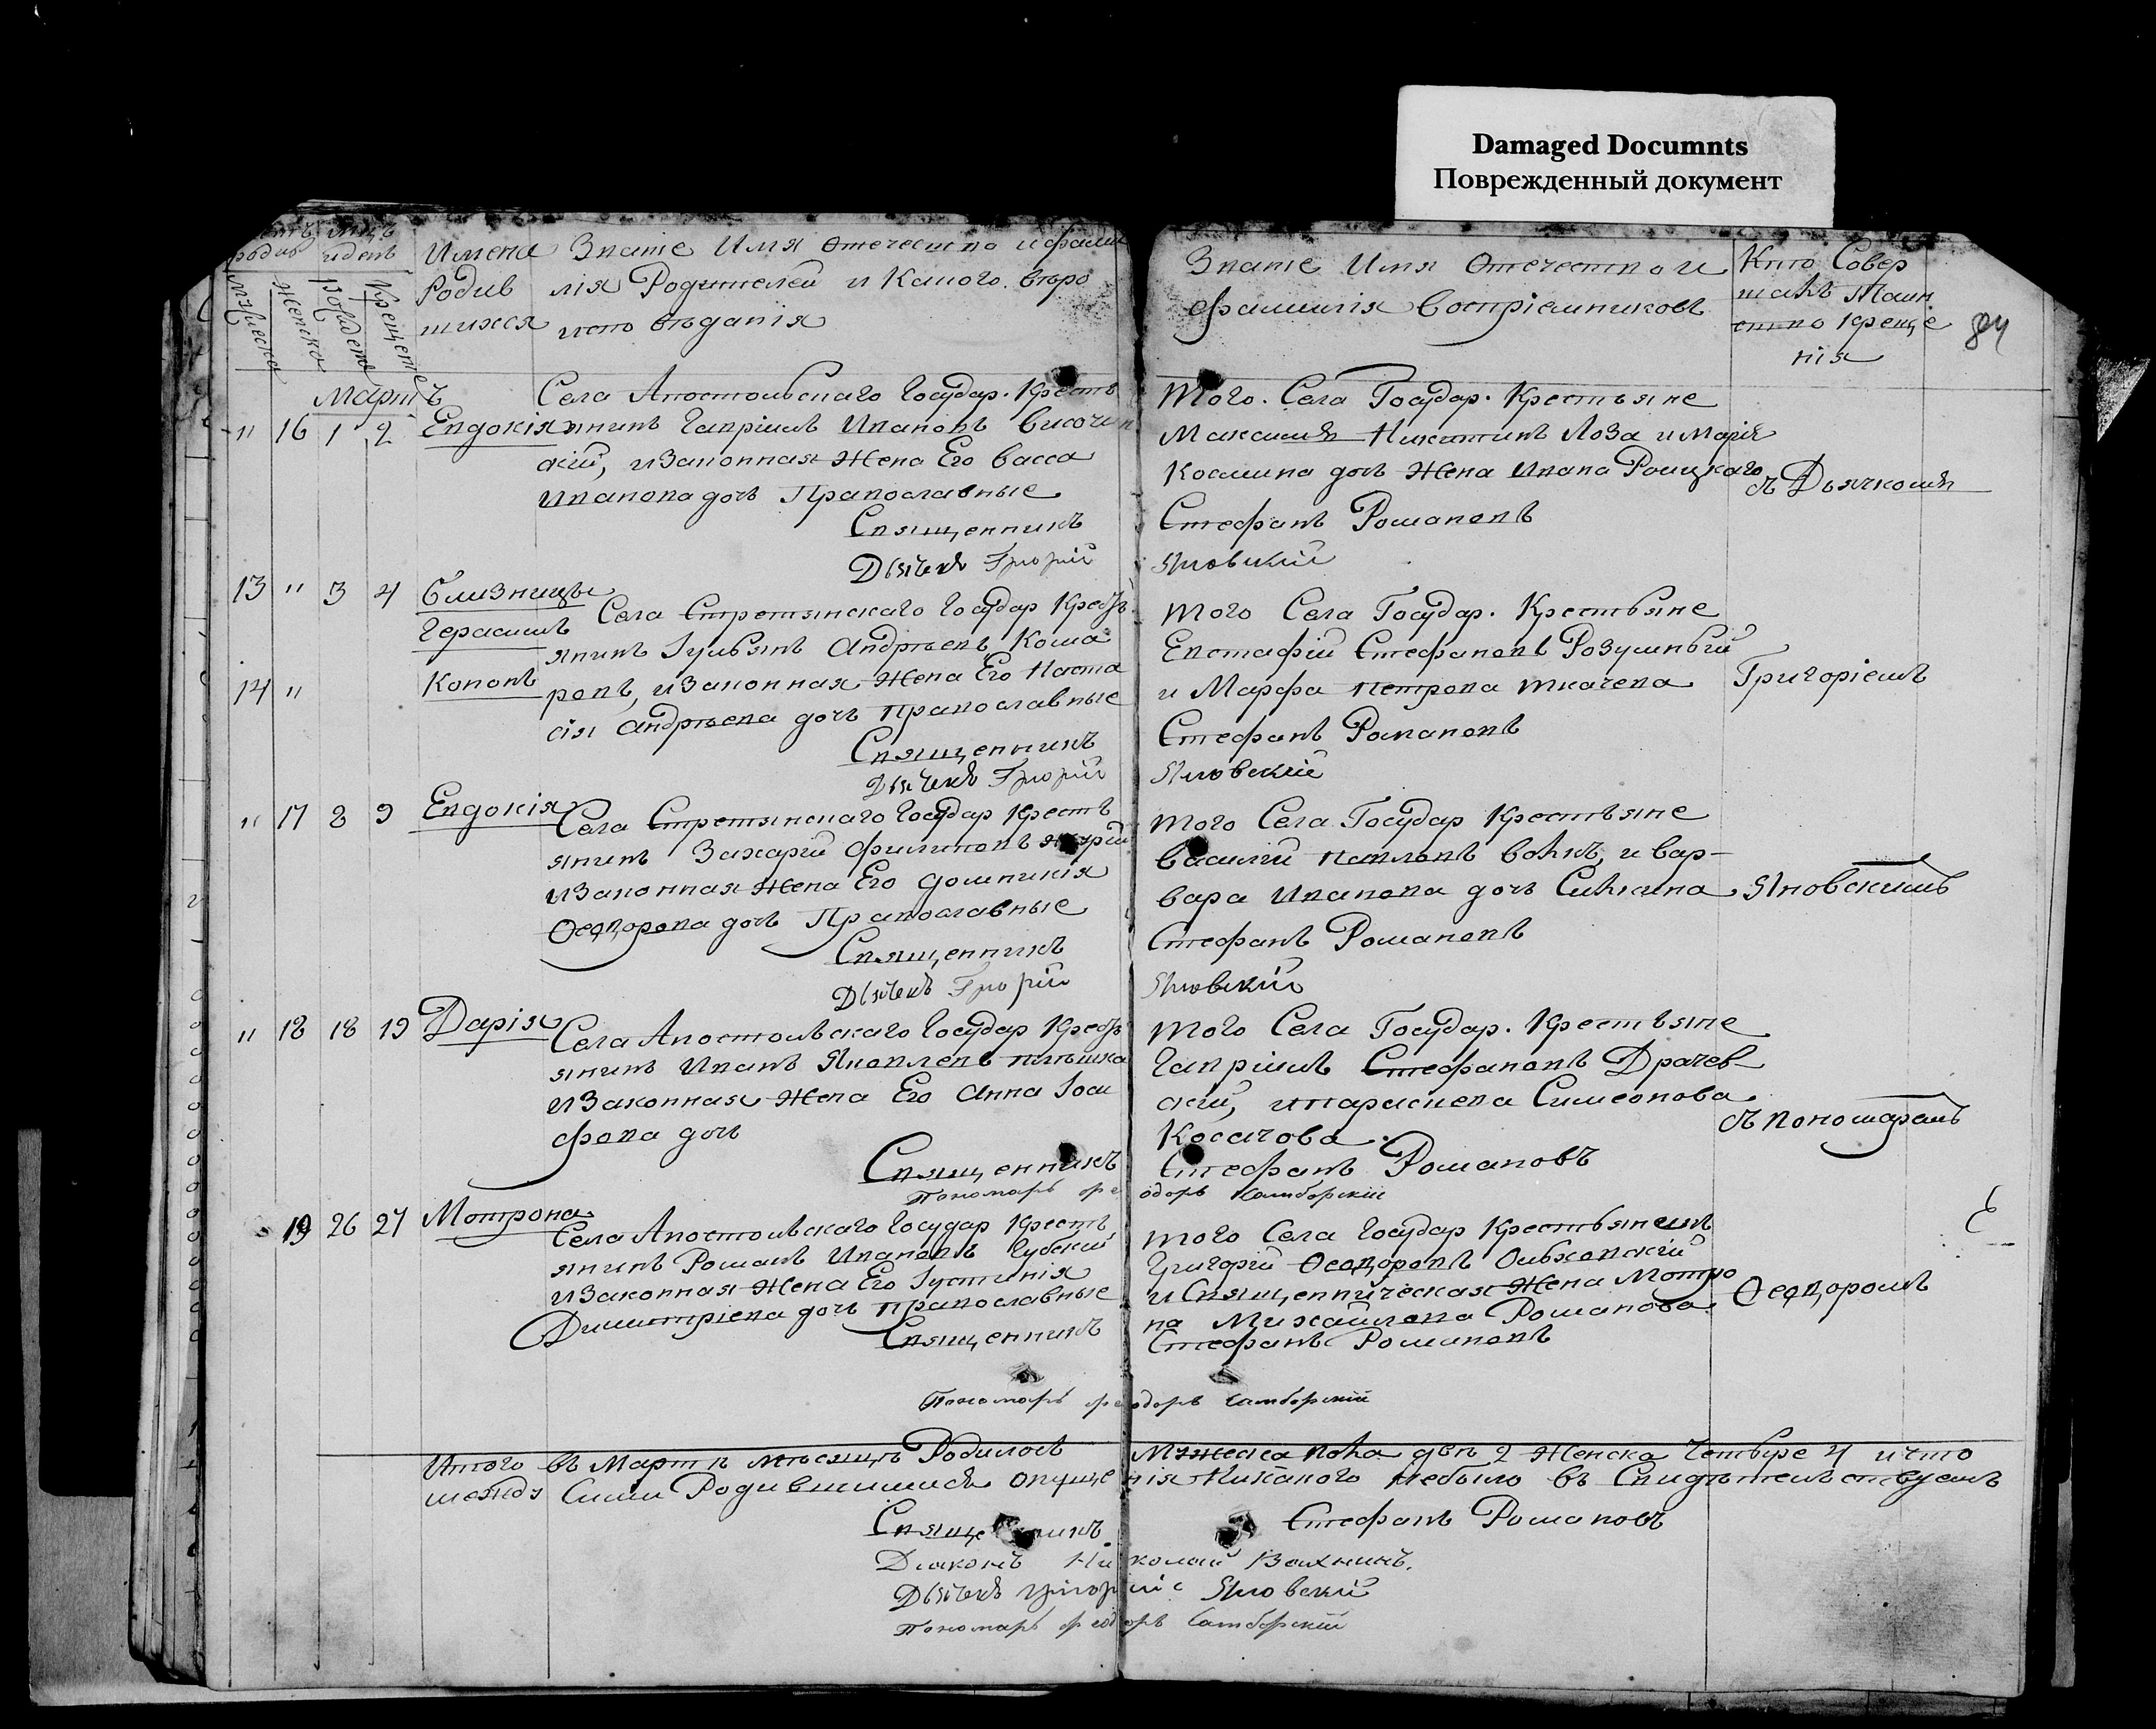 Damaged Documnts
Поврежденный документ
Имена
Родив
шихся
Званіе Имя Отечество и фами
лія Родителей и Какого вѣро
исповѣданія
Званіе Имя Отечество и
фамилія Воспріемниковъ
Кто Совер
шалъ Таин
ство Креще
нія
84
Мартъ
Села Апостольскаго Государ. Кресть
" 16 1 2 Евдокія
янинъ Гавріилъ Ивановъ
скій, и Законная Жена Его Васса
Иванова дочь Православные
Священникъ
Дьячекъ Григорій
Того. Села Государ. Крестьяне
Максимъ Никитинъ Лоза и Марія
Космина дочь Жена Ивана
Стефанъ Романовъ
Яновскій
съ Дьячкомъ
13 " 3 4 Близницы
Герасимъ
14 " Кононъ
Села Стретянскаго Государ Кресть
янинъ Іульянъ Андреевъ Кома
ровъ, и Законная Жена Его Наста
сія Андреева дочь Православные
Священникъ
Дьячекъ Григорій
того Села Государ. Крестьяне
Евстафій Стефановъ Розумный
и Марфа Петрова Ткачева
Стефанъ Романовъ
Яновскій
Григоріемъ
" 17 8 9 Евдокія
Села Стретянскаго Государ Кресть
янинъ Захарій Филиповъ
и Законная Жена Его Домникія
Ѳеодорова дочь Православные
Священникъ
Дьячекъ Григорій
того Села Государ Крестьяне
Василій Павловъ Вовкъ, и Вар-
вара Иванова дочь
Стефанъ Романовъ
Яновскій
Яновскимъ
" 18 18 19 Дарія
Села Апостольскаго Государ Кресть
янинъ Иванъ Яковлевъ
и Законная Жена Его Анна Іоси
фова дочь
Священникъ
Пономарь Ѳе
того Села Государ. Крестьяне
Гавріилъ Стефановъ Драчев-
скій, и Параскева Симеонова
Косачова.
Стефанъ Романовъ
одоръ Самборскій
съ пономаремъ
19 26 27 Мотрона
Села Апостольскаго Государ Кресть
янинъ Романъ Ивановъ Губскій
и Законная Жена Его Іустинія
Димитріева дочь Православные
Священникъ
Пономарь Ѳе
того Села Государ Крестьянинъ
Григорій Ѳеодоровъ Ольховскій
и Священническая Жена Мотро
на Михайлова Романова.
Стефанъ Романовъ
одоръ Самборскій
Ѳеодоромъ
Итого въ Мартѣ мѣсяцѣ Родилось Мужеска пола двѣ 2 Женска Четыре 4 и что
между Сими Родившимися опуще нія Никакого небыло въ Свидѣтельствуемъ
Священникъ Стефанъ Романовъ
Діаконъ Николай Вахнинъ.
Дьячекъ Григорій Яновскій
Пономарь Ѳеодоръ Самборскій